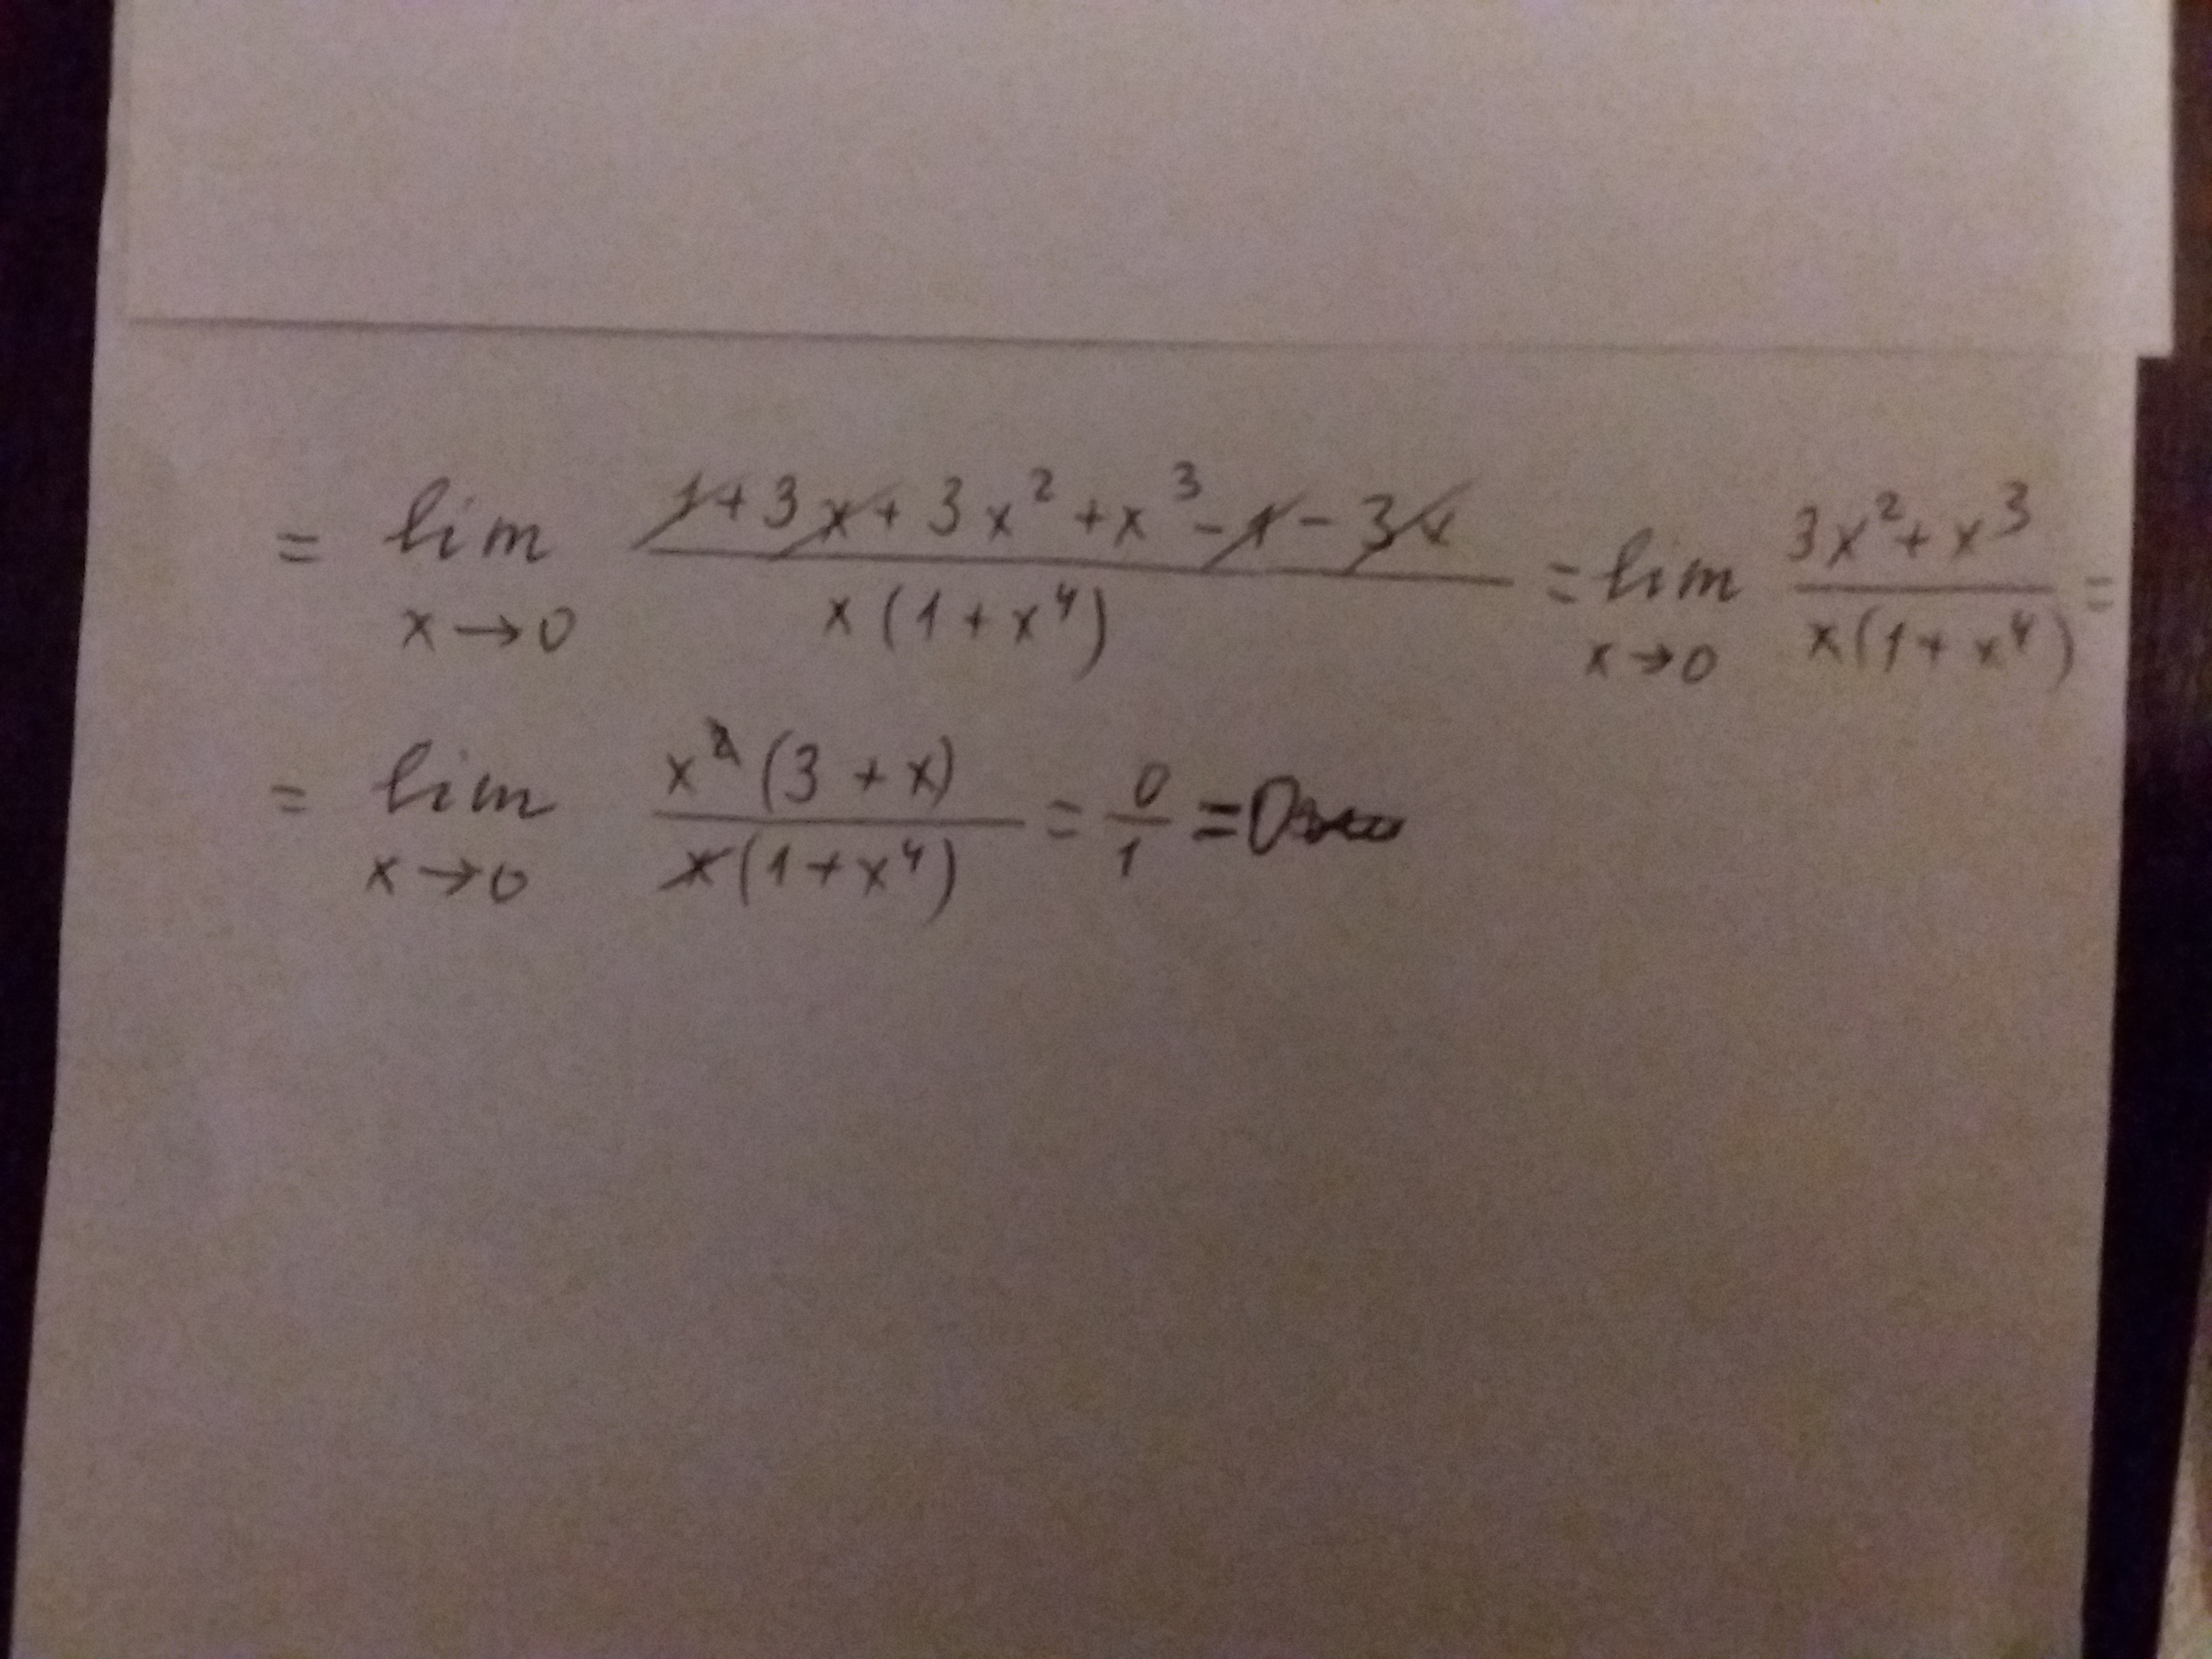 = lim x→0 (1+3x+3x²+x³-1-3x)/(x(1+x⁴)) = lim x→0 (3x²+x³)/(x(1+x⁴)) =
= lim x→0 (x²(3+x))/(x(1+x⁴)) = 0/1 = 0